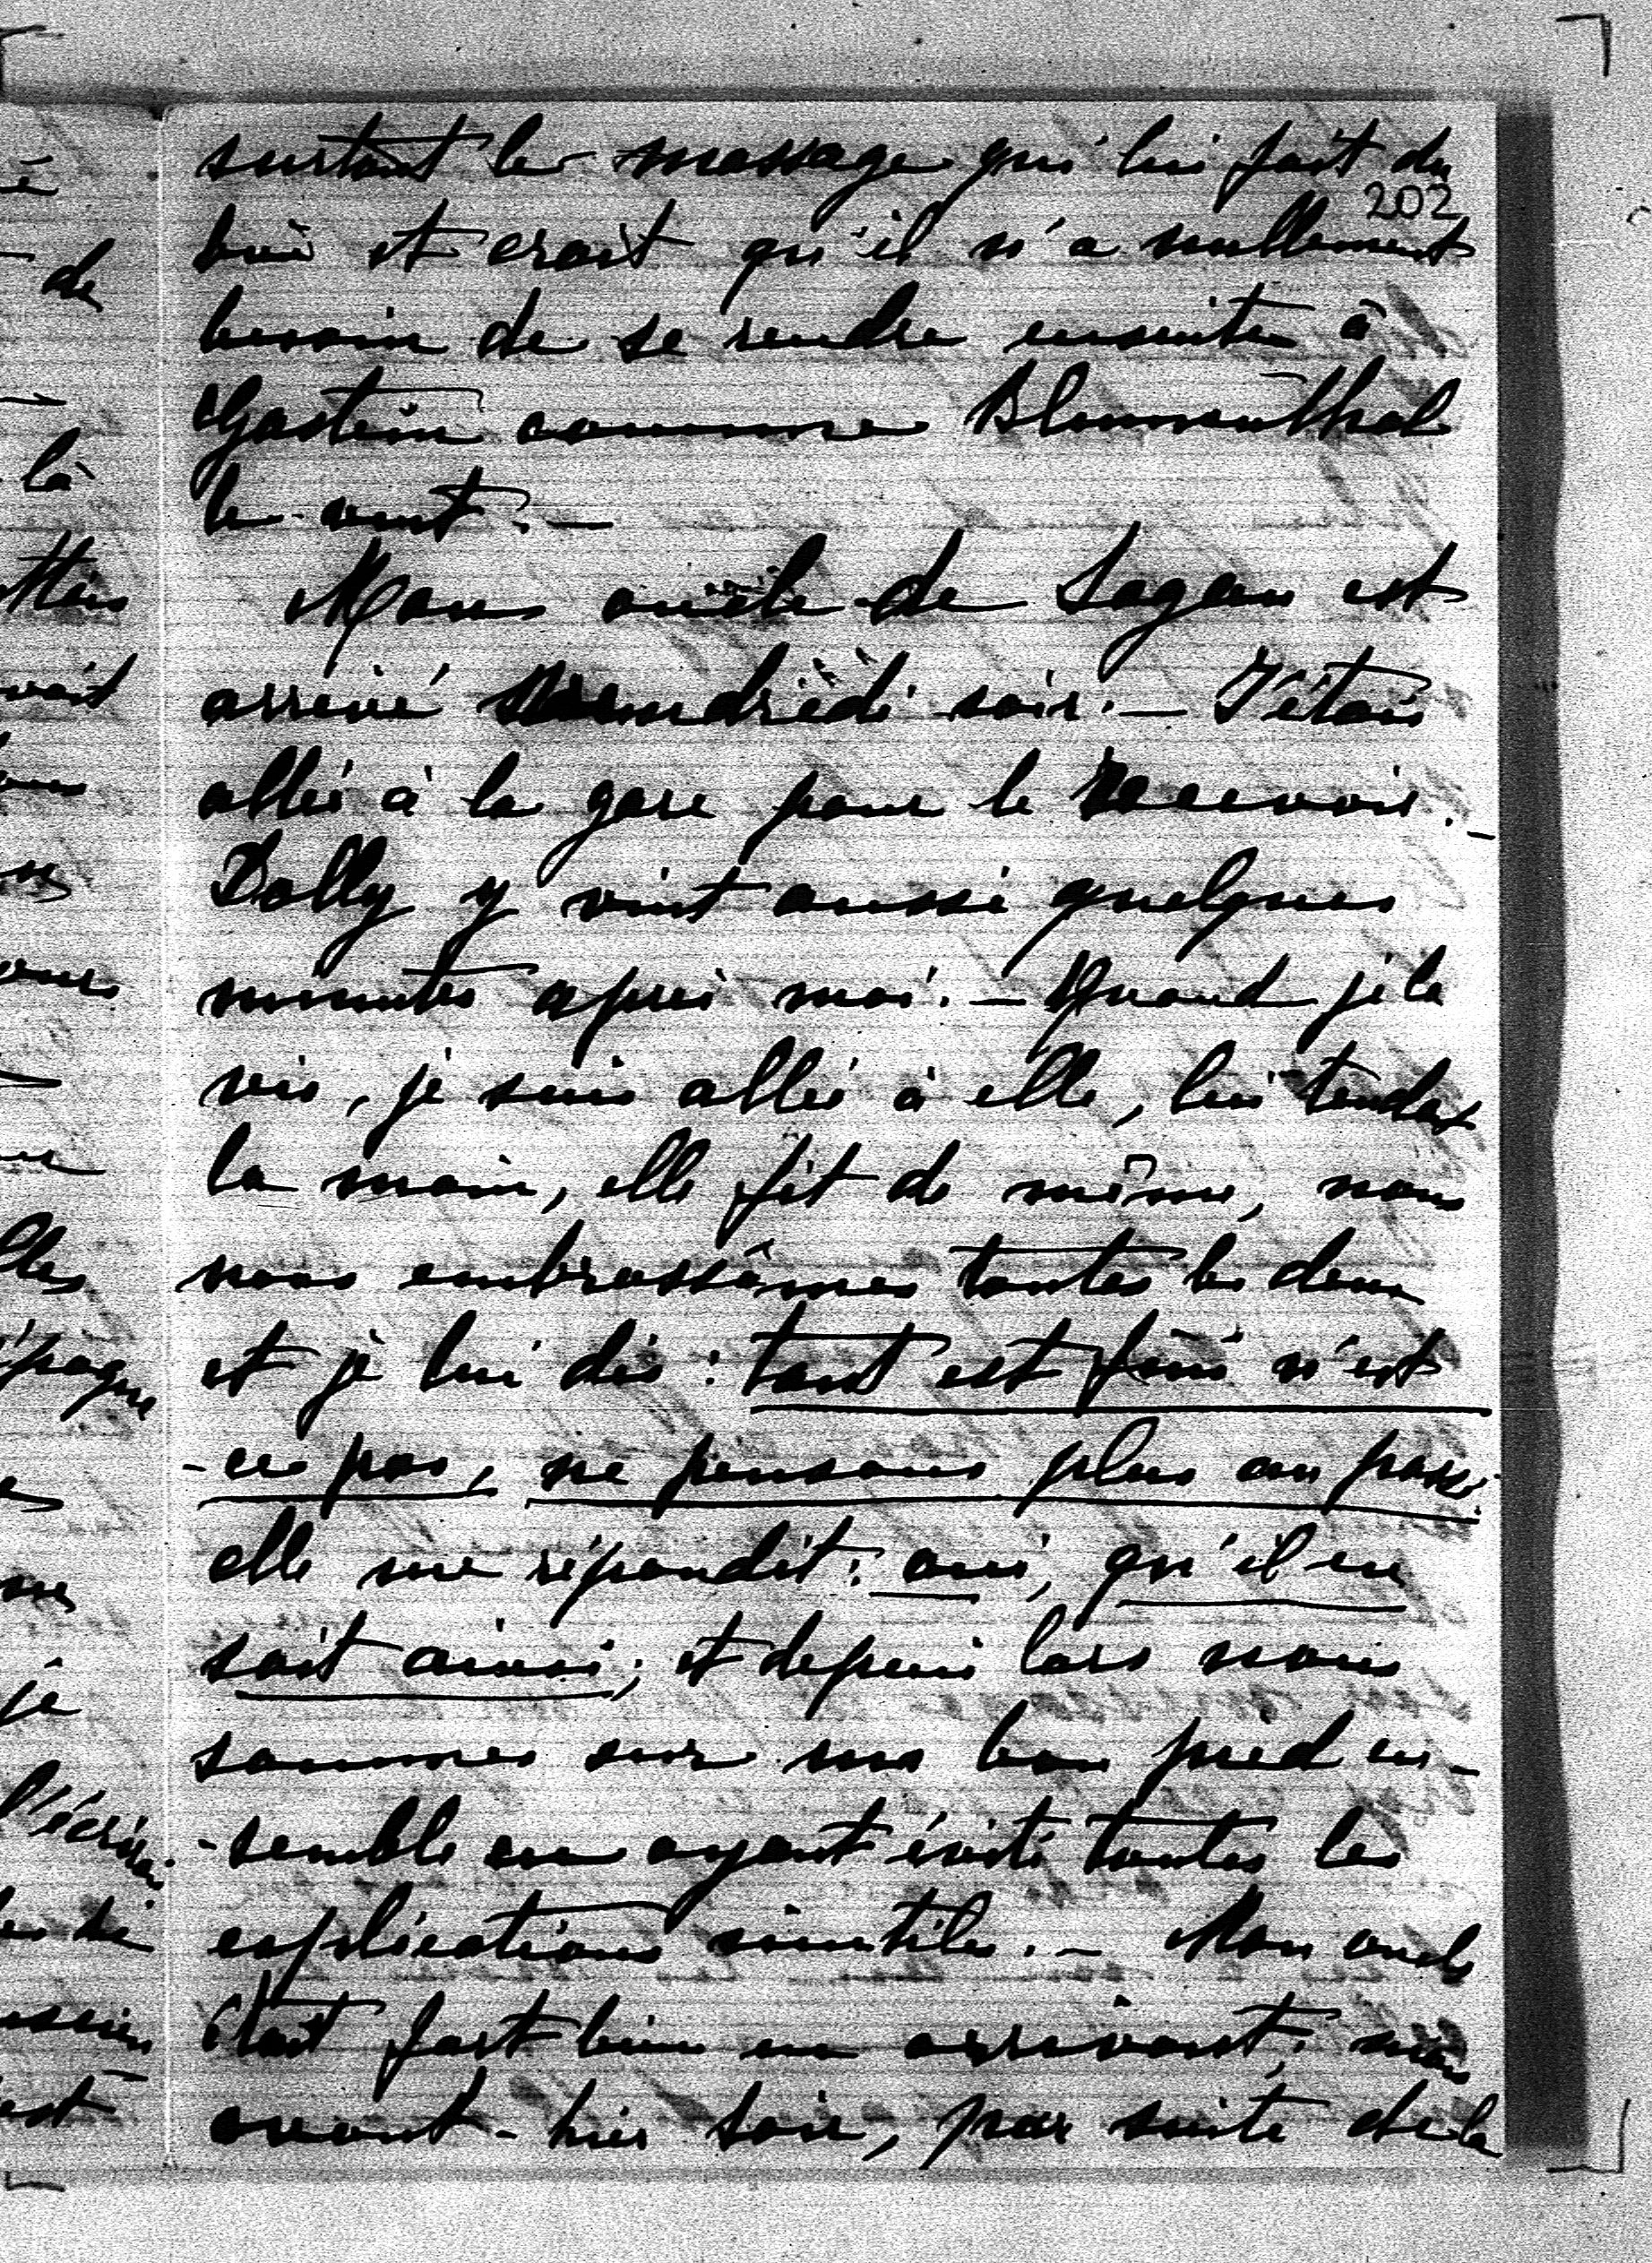 surtout le massage qui lui fait du
202
bien et croit qu'il n'a nullement
besoin de se rendre ensuite à
Gastein comme Blumenthal
le veut. —
Mon oncle de Sagan est
arrivé vendredi soir. — J'étais
allée à la gare pour le recevoir. —
Dolly y vint aussi quelques
minutes après moi. — Quand je la
vis, je suis allée à elle, lui tendat
la main, elle fit de même, nous
nous embrassâmes toutes les deux
et je lui dis : tout est fini n'est
-ce pas, ne pensons plus au passé.
elle me répondit : oui, qu'il en
soit ainsi ; et depuis lors nous
sommes sur un bon pied en-
-semble en ayant évité toutes les
explications inutiles. — Mon oncle
était fort bien en arrivant, mais
avant-hier soir, par suite de la